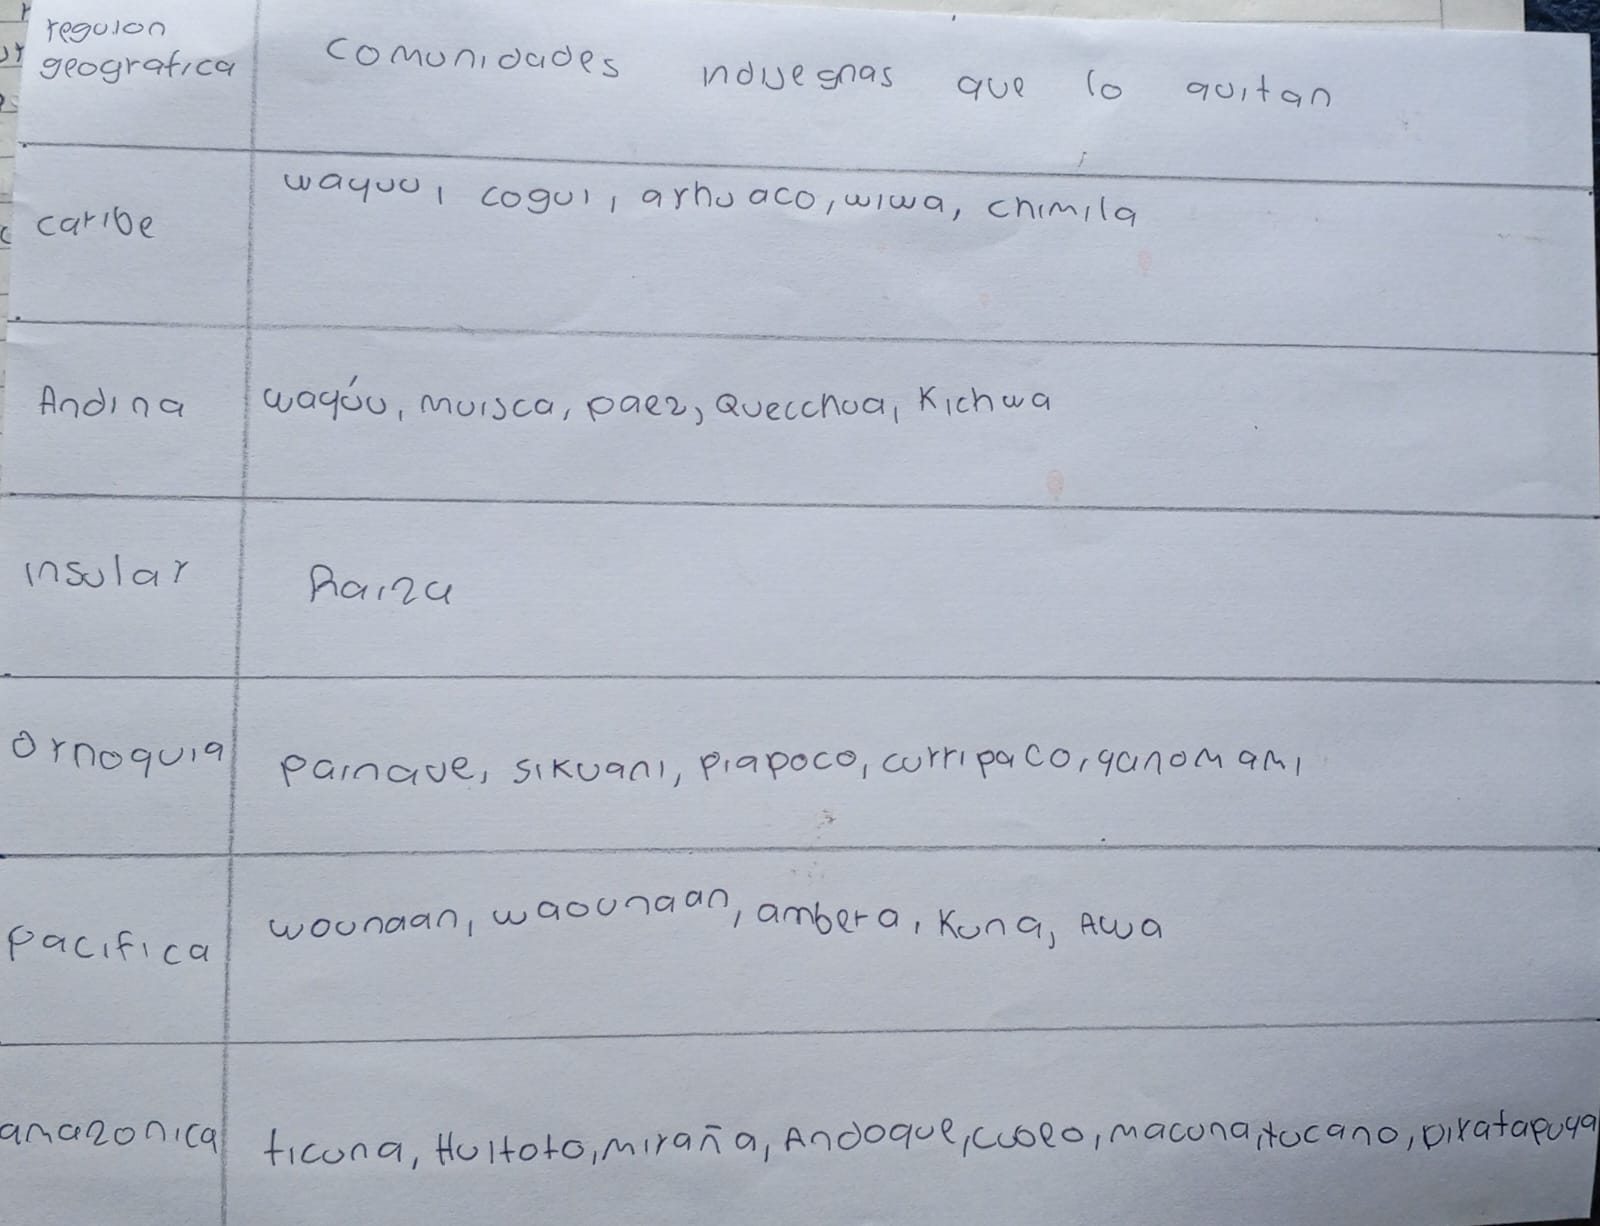 reguion
geografica
comunidades indijegnas que lo auitan
caribe
wayuu, cogui, arhuaco, wiwa, chimila
Andina
wayúu, muisca, paez, Quecchua, Kichwa
insular
Raiza
ornoquia
painave, sikuani, piapoco, curripaco, yanomami
pacifica
wounaan, waounaan, ambera, Kuna, Awa
amazonica
ticuna, Huitoto, miraña, Andoque, cubeo, macuna, tucano, piratapuya